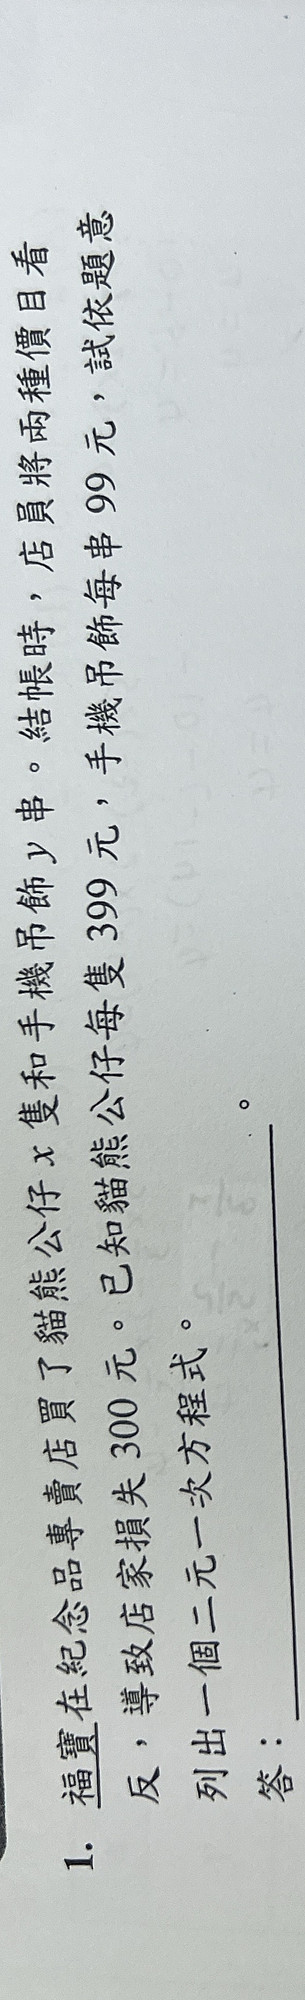 1. 福寶在紀念品專賣店買了貓熊公仔 x 隻和手機吊飾 y 串。結帳時，店員將兩種價目看
反，導致店家損失 300 元。已知貓熊公仔每隻 399 元，手機吊飾每串 99 元，試依題意
列出一個二元一次方程式。
答：＿＿＿＿＿＿＿＿＿＿。